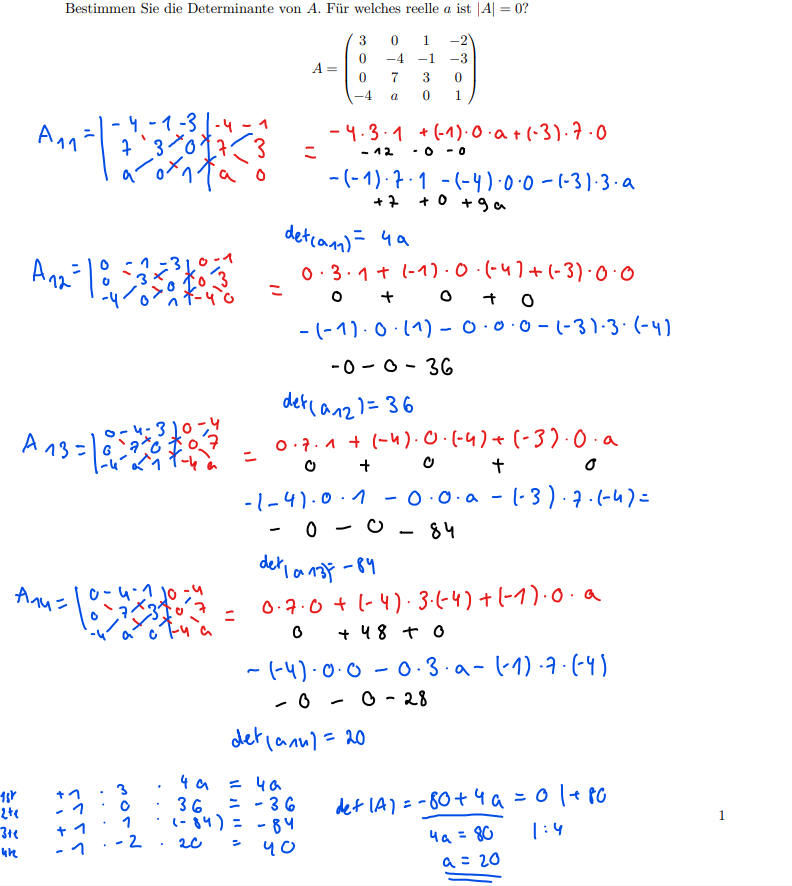 Bestimmen Sie die Determinante von A. Für welches reelle a ist |A| = 0?
3 0 1 −2
0 −4 −1 −3
A =
0 7 3 0
−4 a 0 1
A11 = | -4 -1 -3 | -4 -1
7 3 0 | 7 3
a 0 1 | a 0
= -4·3·1 +(-1)·0·a+(-3)·7·0
-12 -0 -0
-(-1)·7·1 -(-4)·0·0-(-3)·3·a
+7 +0 +9a
det(a11) = 4a
A12 = | 0 -1 -3 | 0 -1
0 3 0 | 0 3
-4 0 1 | -4 0
= 0·3·1 + (-1)·0·(-4)+(-3)·0·0
0 + 0 + 0
-(-1)·0·(1) - 0·0·0-(-3)·3·(-4)
-0-0-36
det(a12) = 36
A13 = | 0 -4 -3 | 0 -4
0 7 0 | 0 7
-4 a 1 | -4 a
= 0·7·1 + (-4)·0·(-4)+(-3)·0·a
0 + 0 + 0
-(-4)·0·1 - 0·0·a - (-3)·7·(-4)=
- 0 - 0 - 84
det(a13)= -84
A14 = | 0 -4 -1 | 0 -4
0 7 3 | 0 7
-4 a 0 | -4 a
= 0·7·0 + (-4)·3·(-4)+(-1)·0·a
0 +48 + 0
-(-4)·0·0 - 0·3·a-(-1)·7·(-4)
- 0 - 0-28
det(a14) = 20
1te +1 · 3 · 4a = 4a
2te -1 · 0 · 36 = -36
3te +1 · 1 · (-84) = -84
4te -1 · -2 · 20 = 40
det(A) = -80+4a = 0 |+80
4a = 80 |:4
a = 20
1